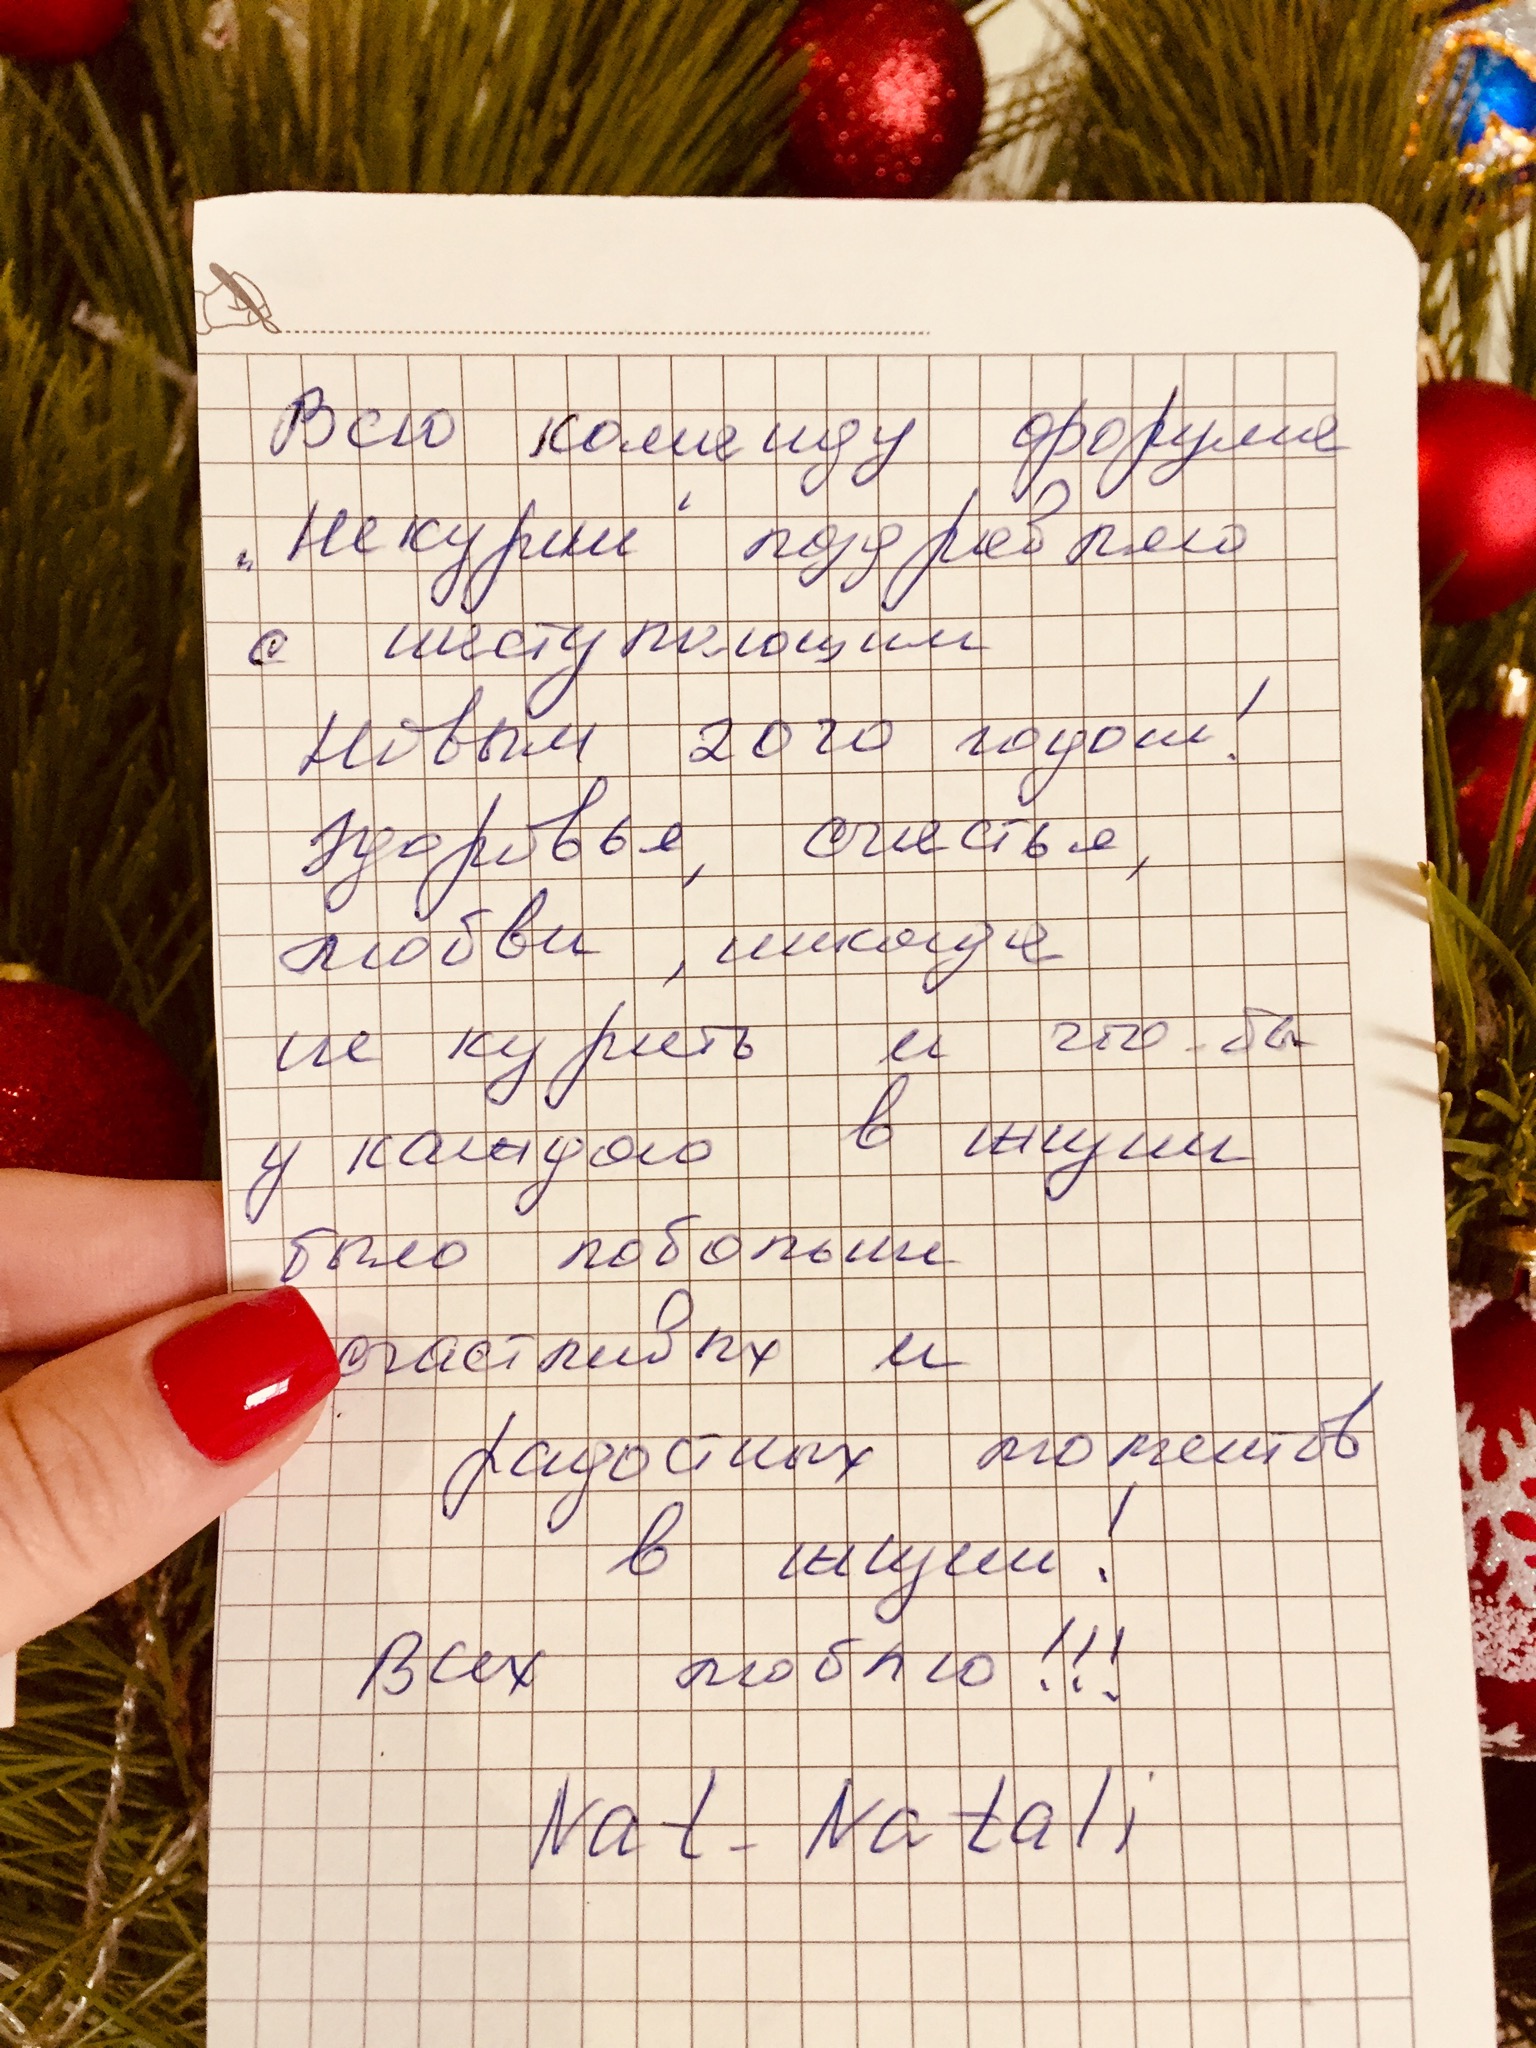 Всю команду форума
"Некурим" поздравляю
с наступающим
Новым 2020 годом!
Здоровья, счастья,
любви, никогда
не курить и что-бы
у каждого в жизни
было побольше
счастливых и
радостных моментов
в жизни!
Всех люблю!!!
Nat-Natali